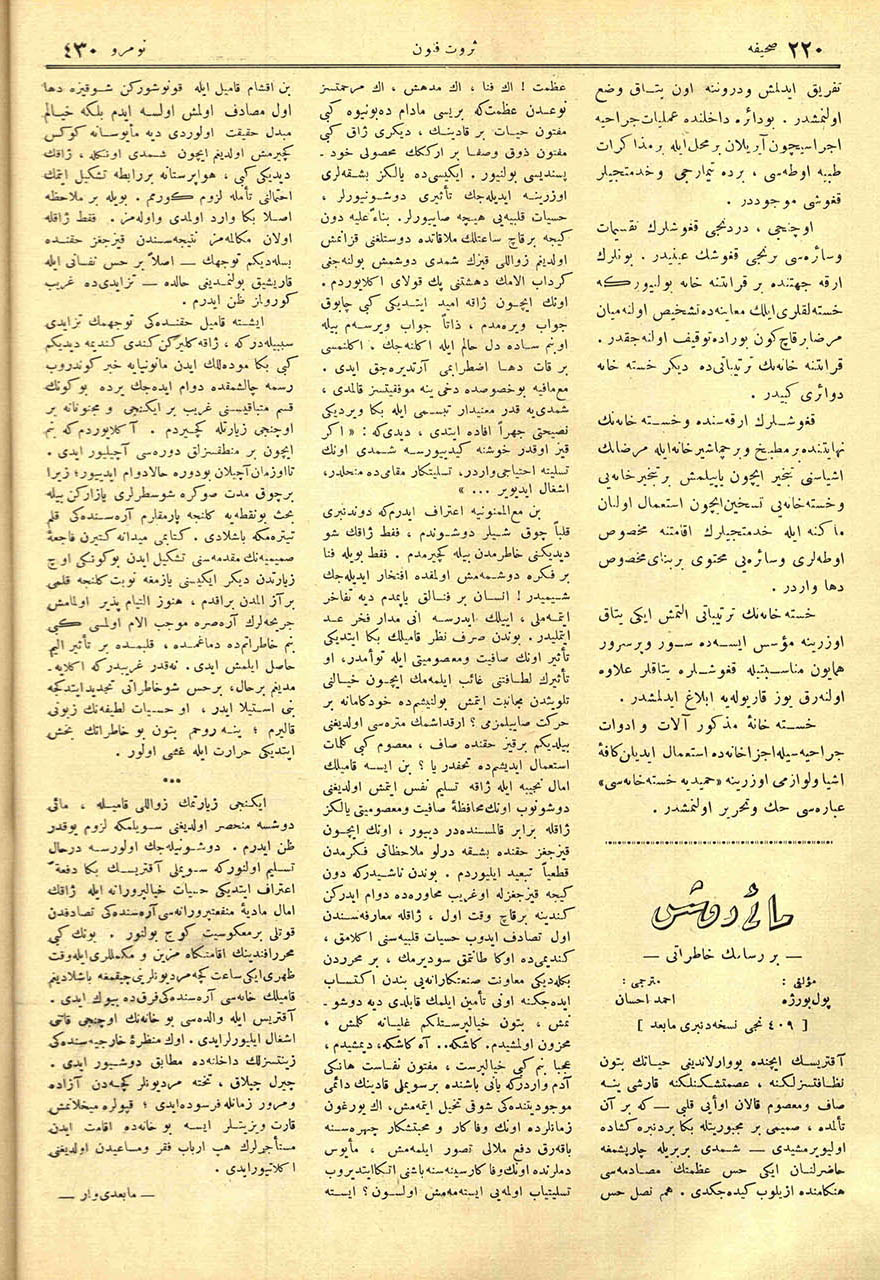 ٢٢٠ صحیفه
ثروت فنون
نومرو ٤٣٠
تفریق ایدلمش ودروننه اون یتاق وضع
اولنمشدر . بودائره داخلنده عملیات جراحیه
اجراسیچون آیریلان برمحل ایله برمذاکرات
طبیه اوطه‌سی ، برده تیمارجی وخدمتجیلر
قغوشی موجوددر .
اوچنجی ، دردنجی قغوشلرك تقسیمات
وسائره‌سی برنجی قغوشك عینیدر . بونلرك
ارقه جهتنده بر قرانتنه خانه بولنیورکه
خسته‌لقلری ایلك معاینه‌ده تشخیص اولنه‌میان
مرضا برقاچ کون بوراده توقیف اولنه‌جقدر .
قرانتنه خانه‌نك ترتیباتی‌ده دیکر خسته خانه
دوائری کبیدر .
قغوشلرك ارقه‌سنده وخسته خانه‌نك
نهایتنده برمطبخ وبرجماشیرخانه ایله مرضانك
اشیاسنی تبخیر ایچون یاپیلمش برتبخیرخانه‌یی
وخسته‌خانه‌یی تسخین ایچون استعمال اولنان
ماکنه ایله خدمتجیلرك اقامتنه مخصوص
اوطه‌لری وسائره‌یی محتوی بربنای مخصوص
دها واردر .
خسته خانه‌نك ترتیباتی التمش ایکی یتاق
اوزرینه مؤسس ایسه‌ده سور وبرسرور
همایون مناسبتیله قغوشلره یتاقلر علاوه
اولنه‌رق یوز قاریوله‌یه ابلاغ ایدلمشدر .
خسته خانۀ مذکور آلات و ادوات
جراحیه‌سیله اجزاخانه‌ده استعمال ایدیلان کافۀ
اشیا ولوازمی اوزرینه «حمیدیه خسته‌خانه‌سی»
عباره‌سی حك وتحریر اولنمشدر .
مائی دوشس
— بر رسامك خاطراتی —
مؤلفی : مترجمی :
پول بورژه احمد احسان
[ ٤٠٩ نجی نسخه‌دنبری مابعد ]
آقتریسك ایچنده یووارلاندیغی حیاتك بتون
نظافتسزلکنه ، عصمتشکنلکنه قارشی ینه
صاف ومعصوم قالان اوآیی قلبی — که بر آن
تألمده ، صمیمی بر مجبوریتله بکا بردنبره کشاده
اولیویرمشیدی — شمدی بربریله چارپشمغه
حاضرلنان ایکی حس عظمتك مصادمه‌سی
هنکامنده ازیلوب کیده‌جکدی . هم نصل حس
عظمت ! اك فنا ، اك مدهش ، اك مرحمتسز
نوعدن عظمت‌که بریسی مادام ده‌بونیوه کبی
مفتون حیات بر قادینك ، دیکری ژاق کبی
مفتون ذوق وصفا بر ارککك محصولی خود ـ
پسندیسی بولنیور . ایکیسی‌ده یالکز بشقه‌لری
اوزرینه ایدیله‌جك تأثیری دوشونیورلر ،
حسیات قلبیه‌یی هیچه صاییورلر . بناءً علیه دون
کیجه برقاچ ساعتلك ملاقاتده دوستلغنی قزانمش
اولدیغم زواللی قیزك شمدی دوشمش بولنه‌جغی
کرداب الامك دهشتنی پك قولای اکلایوردم .
اونك ایچون ژاقه امید ایتدیکی کبی چابوق
جواب ویره‌مدم ، ذاتاً جواب ویرسه‌م بیله
اونم ساده دل حالم ایله اکلنه‌جك . اکلنمسی
بر قات دها اضطرابمی آرتدیره‌جق ایدی .
مع‌مافیه بوخصوصده دخی ینه موفقیتسز قالمدی ،
شمدی‌یه قدر معتیدار تبسمی ایله بکا ویردیکی
نصیحتی جهراً افاده ایتدی ، دیدی‌که : « اکر
قیز اوقدر خوشنه کیدییورسه شمدی اونك
تسلیته احتیاجی واردر ، تسلیتکار مقامی‌ده منحلدر ،
اشغال ایدیویر ... »
بن مع‌الممنونیه اعتراف ایدرم‌که دوندنبری
قلباً چوق شیلر دوشوندم ، فقط ژاقك شو
دیدیکنی خاطرمدن بیله کچیرمدم . فقط بویله فنا
بر فکره دوشمه‌مش اولمغده افتخار ایدیله‌جك
شیمیدر ! انسان بر فنالق یاپمدم دیه تفاخر
ایتمه‌ملی ، ایییلك ایدرسه انی مدار فخر عد
ایتملیدر . بوندن صرف نظر قامیلك بکا ایتدیکی
تأثیر اونك صافیت ومعصومیتی ایله توأمدر، او
تأثیرك لطافتنی غائب ایلمه‌مك ایچون خیالنی
تلویثدن مجانبت ایتمش بولنیشم‌ده خودکامانه بر
حرکت صاییلمزمی ؟ ارقداشمك متره‌سی اولدیغنی
بیلدیکم برقیز حقنده صاف ، معصوم کبی کلمات
استعمال ایدیشم‌ده تحفدر یا ؟ بن ایسه قامیلك
امال نجیبه ایله ژاقه تسلیم نفس ایتمش اولدیغنی
دوشونوب اونك محافظۀ صافیت ومعصومیتی یالکز
ژاقله برابر قالمسنده‌در دییور ، اونك ایچون
قیزجغز حقنده بشقه درلو ملاحظاتی فکرمدن
قطعیاً تبعید ایلیوردم . بوندن ناشیدرکه دون
کیجه قیزجغزله اوغریب محاوره‌ده دوام ایدرکن
کندینه برقاچ وقت اول ، ژاقله معارفه‌سندن
اول تصادف ایدوب حسیات قلبیه‌سنی اکلامق ،
کندیمی‌ده اوکا طانتمق سودیرمك ، بر محرردن
بکله‌دیکی معاونت صنعتکارانه‌یی بندن اکتساب
ایده‌جکنه اونی تأمین ایلمك قابلدی دیه دوشو ـ
نمش ، بتون خیالپرستلکم غلیانه کلمش ،
محزون اولمشیدم . کاشکه.. آه کاشکه، دیمشیدم ،
عجبا بنم کبی خیالپرست ، مفتون نفاست هانکی
آدم واردرکه یانی باشنده برسویملی قادینك دائمی
موجودیتنده‌کی شوقی تخیل ایتمه‌مش، اك یورغون
زمانلرده اونك وفاکار و محبتشکار چهره‌سنه
باقه‌رق دفع ملالی تصور ایلمه‌مش ، مأیوس
دملرنده اونك وفاکار سینه‌سنه باشنی اتکا ایتدیروب
تسلیتیاب اولمه‌یی ایسته‌مه‌مش اولسون ؟ ایسته
بن اقشام قامیل ایله قونوشورکن شوقیزه دها
اول مصادف اولمش اولسه ایدم بلکه خیالم
مبدل حقیقت اولوردی دیه مأیوسانه کوکس
کچیرمش اولدیغم ایچون شمدی اونکله ، ژاقك
دیدیکی کبی ، هواپرستانه بررابطه تشکیل ایتمك
احتمالنی تأمله لزوم کورمم . بویله بر ملاحظه
اصلا بکا وارد اولمدی واوله‌مز . فقط ژاقله
اولان مکالمه‌مز نتیجه‌سندن قیزجغز حقنده
بسله‌دیکم توجهك — اصلاً بر حس نفسانی ایله
قاریشیق بولنمدیغی حالده — تزایدی‌ده غریب
کورولز ظن ایدرم .
ایشته قامیل حقنده‌کی توجهمك تزایدی
سببیله‌درکه ، ژاقه کلیرکن کندی کندیمه دیدیکم
کبی بکا موده‌للك ایدن مانونیایه خبر کوندروب
رسمه چالشمقده دوام ایده‌جك یرده بوکونك
قسم متباقیسنی غریب بر ایکنجی و مجنونانه بر
اوچنجی زیارتله کچیردم . آکلایوردم‌که بنم
ایچون بر منطقسزلق دوره‌سی آچیلیور ایدی .
تااوزمان آچیلان بودوره حالادوام ایدییور؛ زیرا
برچوق مدت صوکره شوسطرلری یازارکن بیله
بحث بونقطه‌یه کلنجه پارمقلرم آره‌سنده‌کی قلم
تیتره‌مکه باشلادی . کتابمی میدانه کتیرن فاجعۀ
صمیمیه‌نك مقدمه‌سنی تشکیل ایدن بوکونکی اوچ
زیارتدن دیکر ایکیسنی یازمغه نوبت کلنجه قلمی
برآز المدن براقدم ، هنوز التیام پذیر اولمامش
جریحه‌لرك آره‌صره موجب الام اولمسی کبی
بنم خاطراتم‌ده دماغمده ، قلبمده بر تأثیر الیم
حاصل ایلمش ایدی . نه‌قدر غریبدرکه اکلایه‌ـ
مدیغم برحال، برحس شوخاطراتی تجدید ایتدکجه
بنی استیلا ایدر ، او حسیات لطیفه‌نك زبونی
قالیرم ؛ ینه روحم بتون بو خاطراتك بخش
ایتدیکی حرارت ایله غشی اولور .
***
ایکنجی زیارتمك زواللی قامیله ، مائی
دوشسه منحصر اولدیغنی سویلمکه لزوم یوقدر
ظن ایدرم . دوشونیله‌جك اولورسه درحال
تسلیم اولنورکه سویملی آقتریسك بکا دفعةً
اعتراف ایتدیکی حسیات خیالپرورانه ایله ژاقك
امال مادیۀ منفعتپرورانه‌سی آره‌سنده‌کی تصادفدن
قوتلی برمعکوسیت کوچ بولنور . بونك کبی
محررافندینك اقامتکاه مزین و مکمللری ایله‌وقت
ظهری ایکی ساعت کچه مردیونلرینی چیقمغه باشلادیغم
قامیلك خانه‌سی آره‌سنده‌کی فرق‌ده بیوك ایدی .
آقتریس ایله والده‌سی بو خانه‌نك اوچنجی قاتنی
اشغال ایلیورلرایدی . اوك منظرۀ خارجیه‌سنده‌کی
زینتسزلك داخلنه‌ده مطابق دوشیور ایدی .
چیرل چپلاق ، تخته مردیونلر کچه‌دن آزاده
ومرور زمانله فرسوده‌ایدی ؛ قپولره میخلانمش
قارت ویزیتلر ایسه بو خانه‌ده اقامت ایدن
مستأجرلرك هپ ارباب فقر ومساعیدن اولدیغنی
اکلاتیورایدی .
— مابعدی وار —